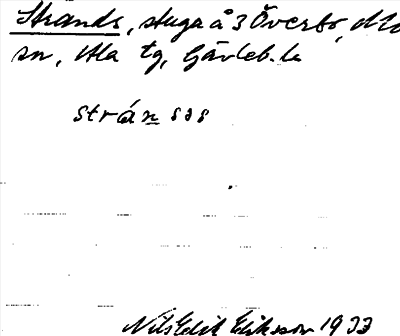 Strands, stuga å 3 Överbo, Mo
sn, Ala tg, Gävleb. l.
stránsəs
Nils Edit Eriksson 1933